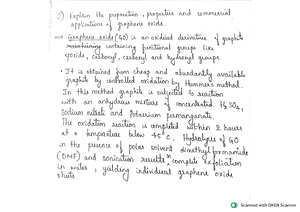 3) Explain the preparation, properties and commercial
applications of graphene oxide.
⇒ Graphene oxide (GO) is an oxidised derivative of graphite
containing functional groups like
epoxide, carbonyl, carboxyl and hydroxyl groups.
• It is obtained from cheap and abundantly available
graphite by controlled oxidation by Hummer's method.
In this method graphite is subjected to reaction
with an anhydrous mixture of concentrated H₂SO₄,
Sodium nitrate and Potassium permanganate.
The oxidation reaction is completed within 2 hours
at a temperature below 45°C. Hydrolysis of GO
in the presence of polar solvent dimethyl formamide
(DMF) and sonication results in complete exfoliation
in water, yielding individual graphene oxide
sheets
Scanned with OKEN Scanner